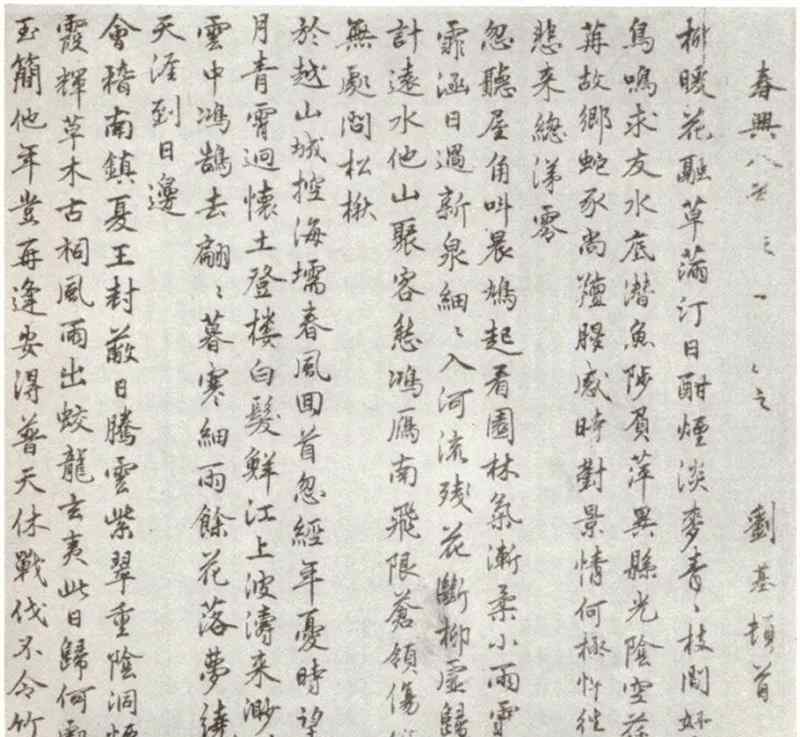 春興八首 劉基頓首
柳暖花融草滿汀日酣煙淡麥青〻枝間好
鳥鳴求友水底潛魚陟負萍異縣光陰空荏
苒故鄉蛇豕尚羶腥感時對景情何極往
悲来總涕零
忽聽屋角叫晨鳩起看園林氣漸柔小雨霏
霏涵日過新泉細〻入河流殘花斷柳虛歸
計遠水他山聚客愁鴻雁南飛限蒼領傷
無處問松楸
於越山城控海壖春風回首忽經年憂時望
月青霄迥懷土登樓白髮鮮江上波濤来渺
雲中鴻鵠去翩〻暮寒細雨餘花落夢繞
天涯到日邊
會稽南鎮夏王封蔽日騰雲紫翠重陰洞煙
霞輝草木古祠風雨出蛟龍玄夷此日歸何處
玉簡他年豈再逢安得普天休戰伐不令竹